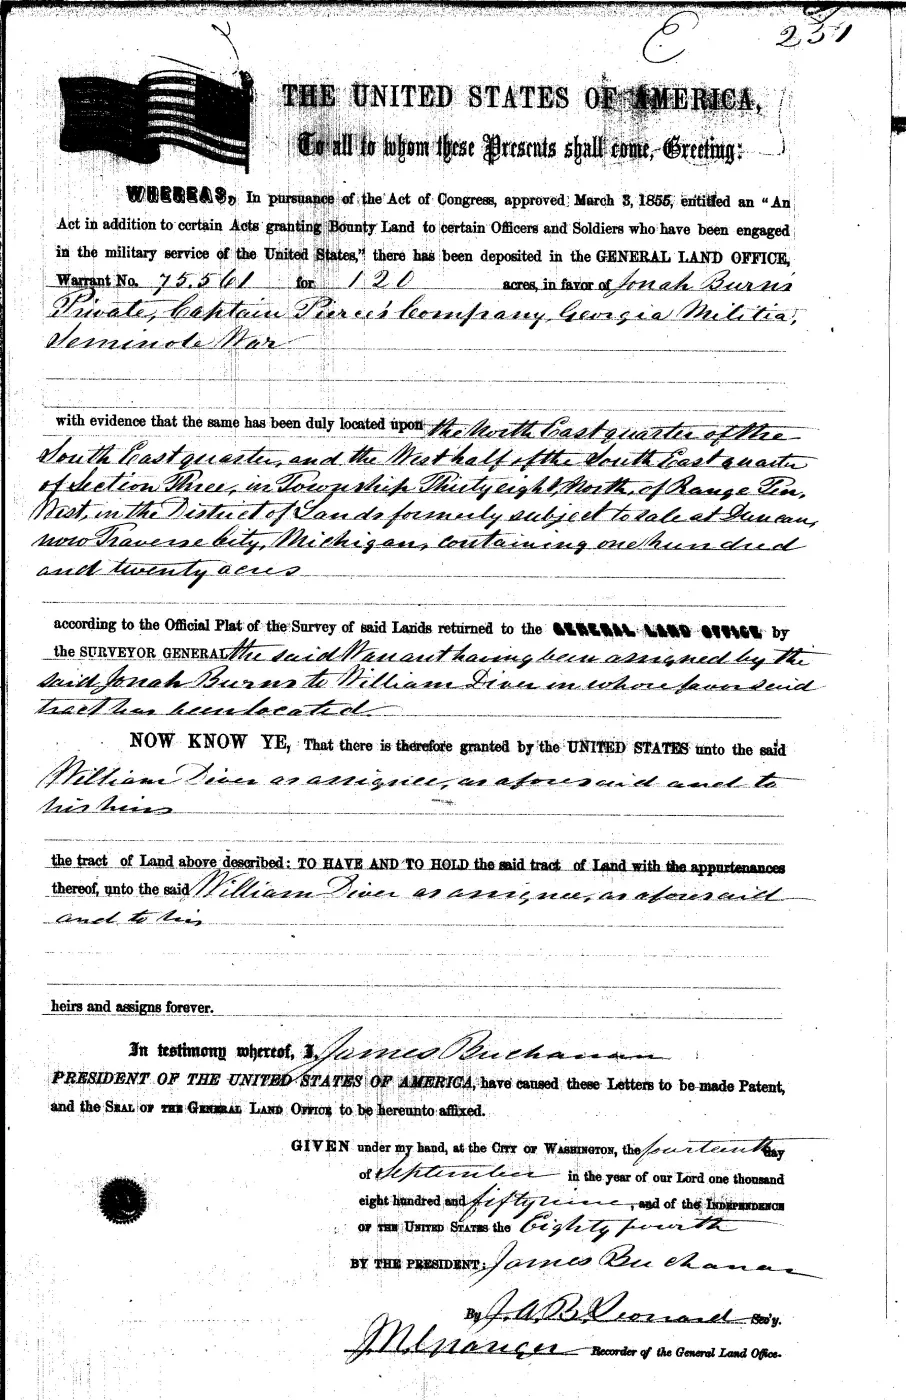 E 251
THE UNITED STATES OF AMERICA,
To all to whom these Presents shall come, Greeting:
WHEREAS, In pursuance of the Act of Congress, approved March 3, 1855, entitled an "An
Act in addition to certain Acts granting Bounty Land to certain Officers and Soldiers who have been engaged
in the military service of the United States," there has been deposited in the GENERAL LAND OFFICE,
Warrant No. 75.561 for 120 acres, in favor of Jonah Burns
Private, Captain Pierce's Company, Georgia Militia,
Seminole War
with evidence that the same has been duly located upon the North East quarter of the
South East quarter, and the West half of the South East quarter
of Section Three, in Township Thirty eight, North, of Range Ten,
West, in the District of Lands formerly subject to sale at Duncan,
now Traverse City, Michigan, containing one hundred
and twenty acres
according to the Official Plat of the Survey of said Lands returned to the GENERAL LAND OFFICE by
the SURVEYOR GENERAL the said Warrant having been assigned by the
said Jonah Burns to William Diver in whose favor said
tract has been located.
NOW KNOW YE, That there is therefore granted by the UNITED STATES unto the said
William Diver as assignee, as aforesaid and to
his heirs
the tract of Land above described: TO HAVE AND TO HOLD the said tract of Land with the appurtenances
thereof, unto the said William Diver as assignee, as aforesaid
and to his
heirs and assigns forever.
In testimony whereof, I, James Buchanan
PRESIDENT OF THE UNITED STATES OF AMERICA, have caused these Letters to be made Patent,
and the SEAL OF THE GENERAL LAND OFFICE to be hereunto affixed.
GIVEN under my hand, at the CITY OF WASHINGTON, the fourteenth day
of September in the year of our Lord one thousand
eight hundred and fifty nine, and of the INDEPENDENCE
OF THE UNITED STATES the Eighty fourth
BY THE PRESIDENT: James Buchanan
By J. A. B. Leonard Sec'y.
J. N. Granger Recorder of the General Land Office.